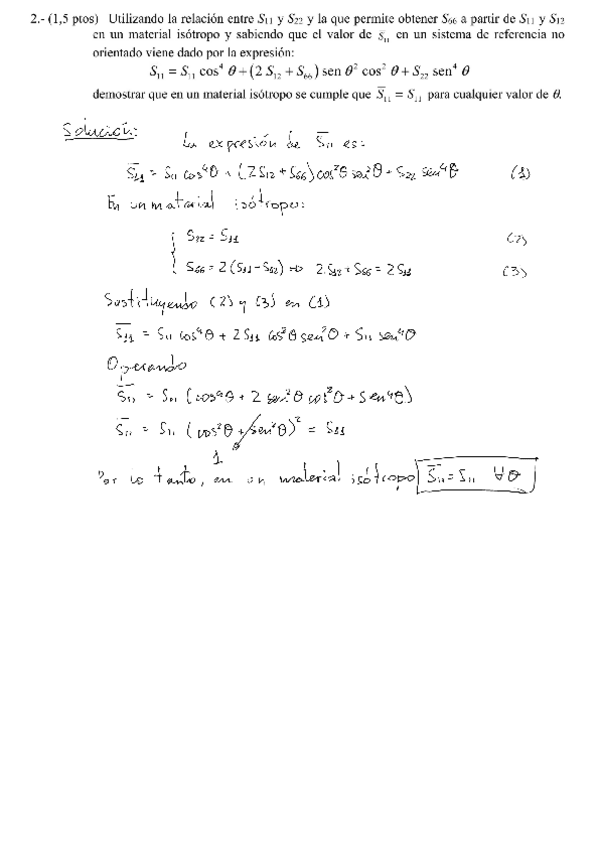 2.- (1,5 ptos) Utilizando la relación entre S₁₁ y S₂₂ y la que permite obtener S₆₆ a partir de S₁₁ y S₁₂
en un material isótropo y sabiendo que el valor de S̅₁₁ en un sistema de referencia no
orientado viene dado por la expresión:
S₁₁ = S₁₁ cos⁴ θ + (2 S₁₂ + S₆₆) sen θ² cos² θ + S₂₂ sen⁴ θ
demostrar que en un material isótropo se cumple que S̅₁₁ = S₁₁ para cualquier valor de θ.
Solución:
La expresión de S̅₁₁ es:
S̅₁₁ = S₁₁ cos⁴θ + (2S₁₂ + S₆₆) cos²θ sen²θ + S₂₂ sen⁴θ (1)
En un material isótropo:
S₂₂ = S₁₁ (2)
S₆₆ = 2(S₁₁ - S₁₂) => 2S₁₂ + S₆₆ = 2S₁₁ (3)
Sustituyendo (2) y (3) en (1)
S̅₁₁ = S₁₁ cos⁴θ + 2S₁₁ cos²θ sen²θ + S₁₁ sen⁴θ
Operando
S̅₁₁ = S₁₁ (cos⁴θ + 2 sen²θ cos²θ + sen⁴θ)
S̅₁₁ = S₁₁ (cos²θ + sen²θ)² = S₁₁
1
Por lo tanto, en un material isótropo S̅₁₁ = S₁₁ ∀θ